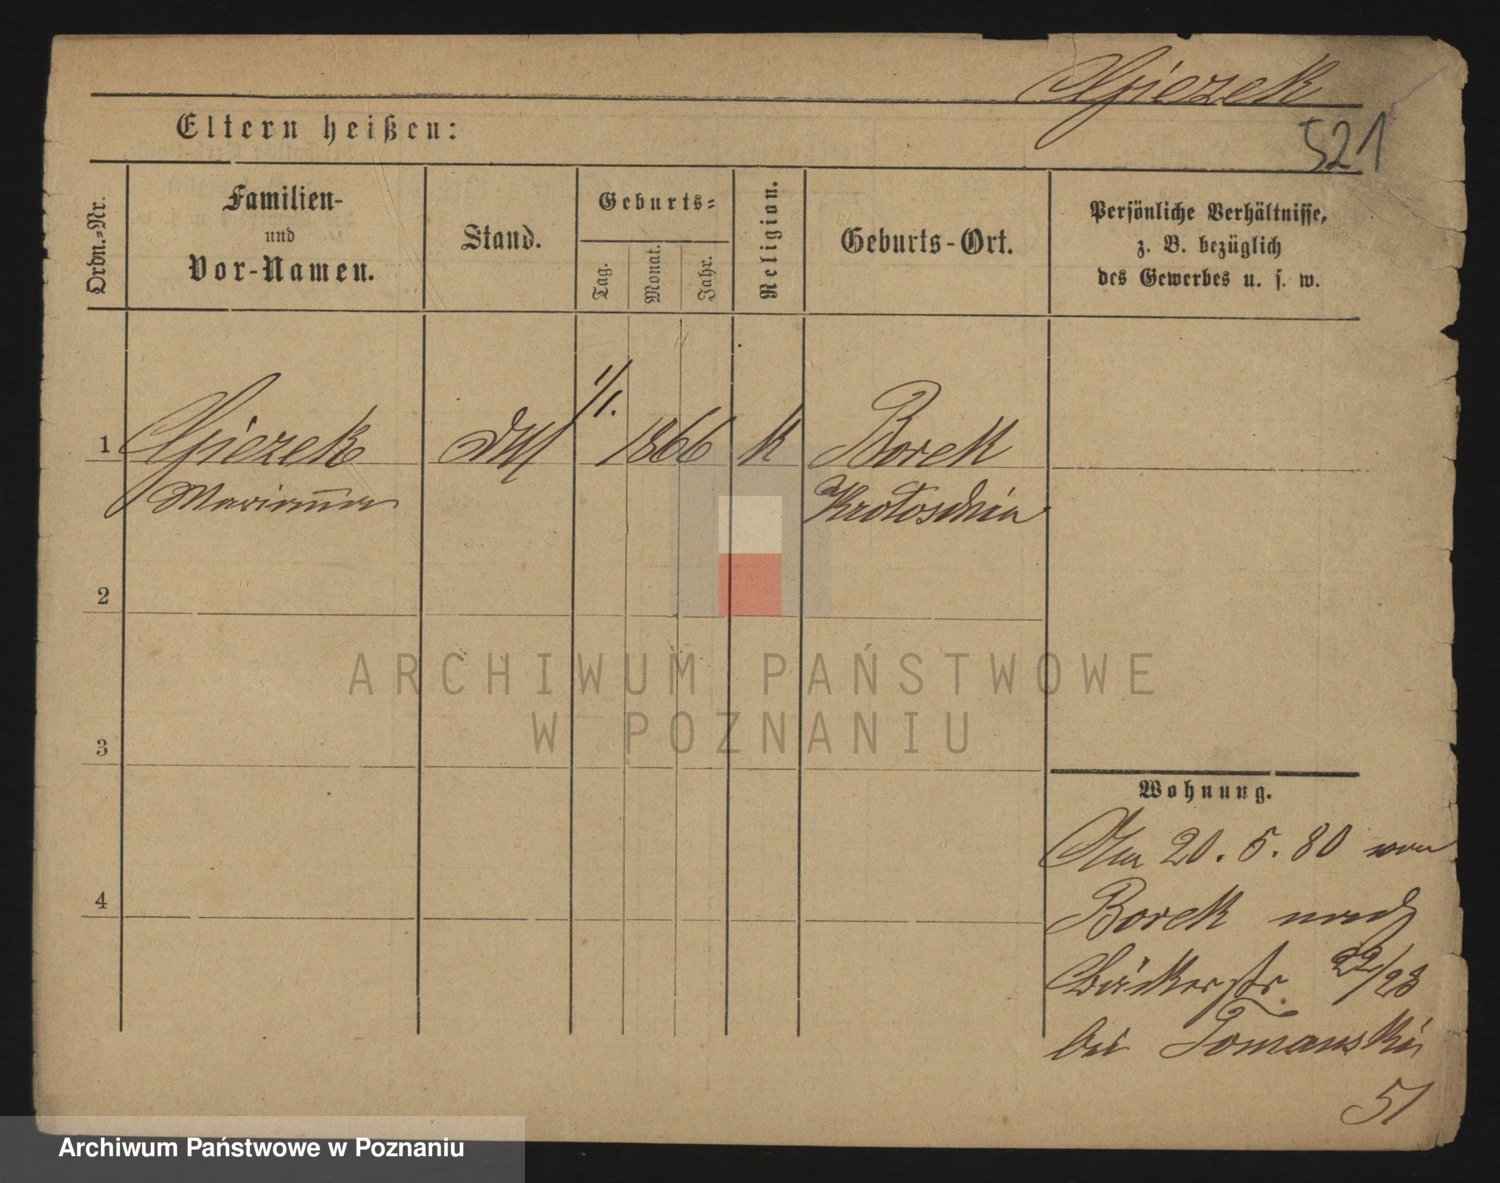 Gjezek
521
Eltern heißen:
Ordn.-Nr.
Familien-
und
Vor-Namen.
Stand.
Geburts-
Tag.
Monat.
Jahr.
Religion.
Geburts-Ort.
Persönliche Verhältnisse,
z. B. bezüglich
des Gewerbes u. s. w.
1
1/1. 1866
k
Borek
Marianna
Krotoschin
2
3
4
Wohnung.
Am 20. 5. 80 von
Borek nach
Bäckerstr. 22/23
bei Tomanski
51
ARCHIWUM PAŃSTWOWE
W POZNANIU
Archiwum Państwowe w Poznaniu